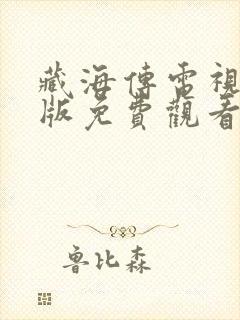 藏海傳電視
版免費觀看
魯比森